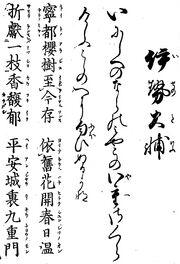 伊勢大輔
いにしへのならのみやこのやへざくら
けふこゝのへににほひぬるかな
寧都櫻樹至今存　依舊花開春日温
折獻一枝香馥郁　平安城裏九重門